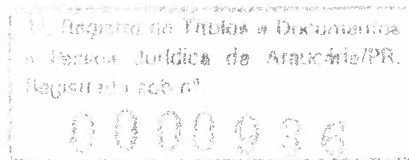 Registro de Títulos e Documentos
e Pessoa Jurídica de Araucária/PR.
Registrado sob nº
0000936